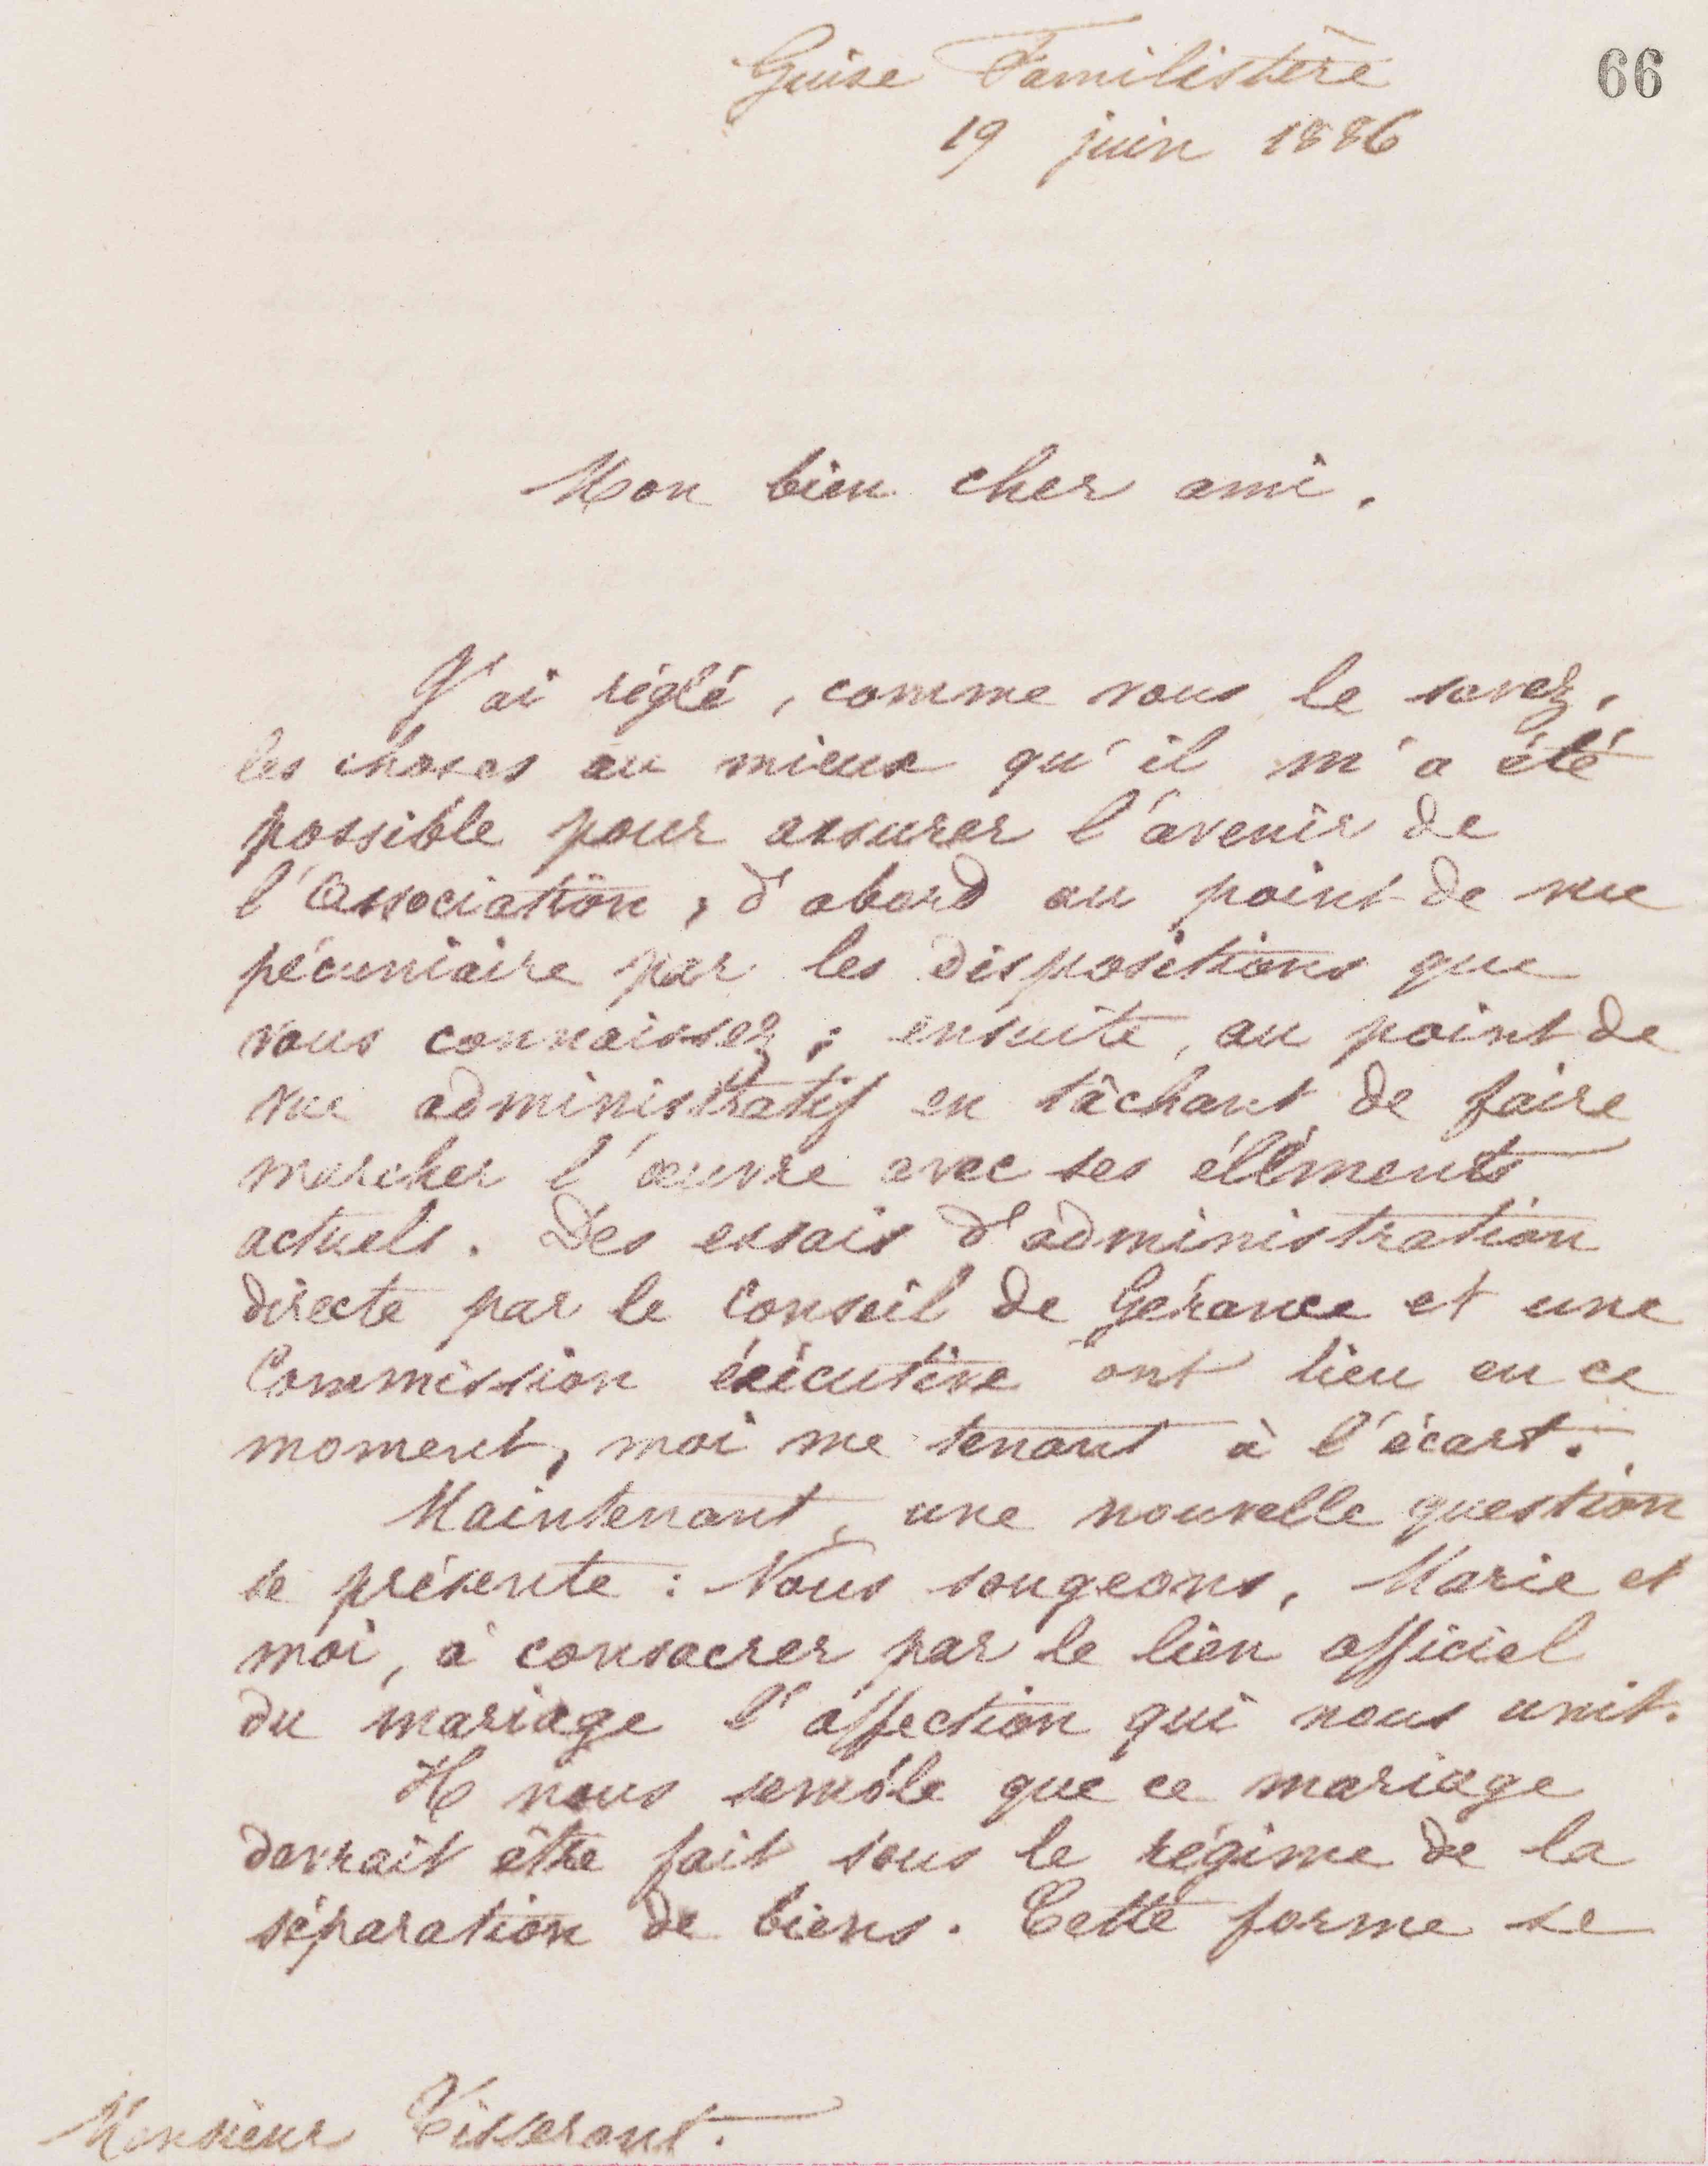 Guise Familistère
66
19 juin 1886
Mon bien cher ami,
J'ai réglé, comme vous le savez,
les choses au mieux qu'il m'a été
possible pour assurer l'avenir de
l'Association, d'abord au point de vue
pécuniaire par les dispositions que
vous connaissez ; ensuite, au point de
vue administratif en tâchant de faire
marcher l'œuvre avec ses éléments
actuels. Des essais d'administration
directe par le Conseil de Gérance et une
Commission éxécutive ont lieu en ce
moment, moi me tenant à l'écart.
Maintenant, une nouvelle question
se présente : Nous songeons, Marie et
moi, à consacrer par le lien officiel
du mariage l'affection qui nous unit.
Il nous semble que ce mariage
devrait être fait sous le régime de la
séparation de biens. Cette forme se
Monsieur Tisserant.